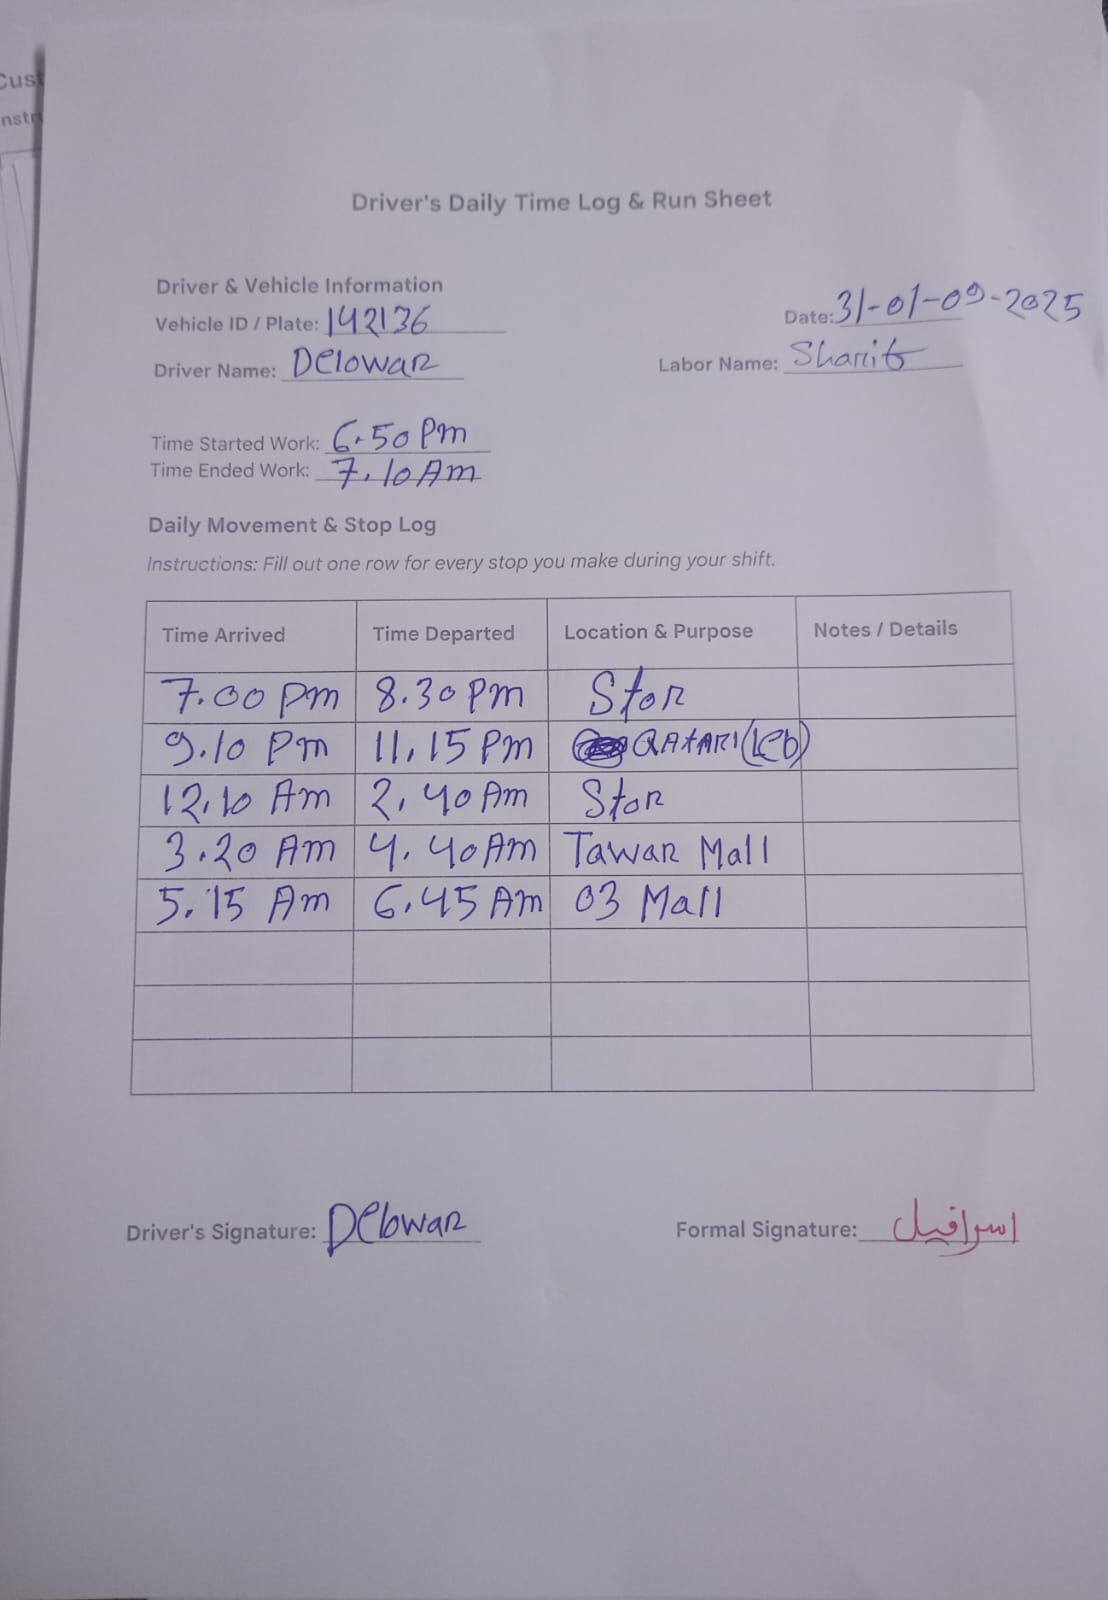 Cust
nstru
Driver's Daily Time Log & Run Sheet
Driver & Vehicle Information
Vehicle ID / Plate: 142136
Date: 31-01-09-2025
Driver Name: Delowar
Labor Name:
Time Started Work: 6.50 Pm
Time Ended Work: 7.10 Am
Daily Movement & Stop Log
Instructions: Fill out one row for every stop you make during your shift.
Time Arrived Time Departed Location & Purpose Notes / Details
7.00 pm 8.30 pm Stor
9.10 Pm 11.15 Pm QATARI (Leb)
12.10 Am 2.40 Am Stor
3.20 Am 4.40 Am Tawar Mall
5.15 Am 6.45 Am 03 Mall
Driver's Signature: Delowar
Formal Signature: اسرافيل